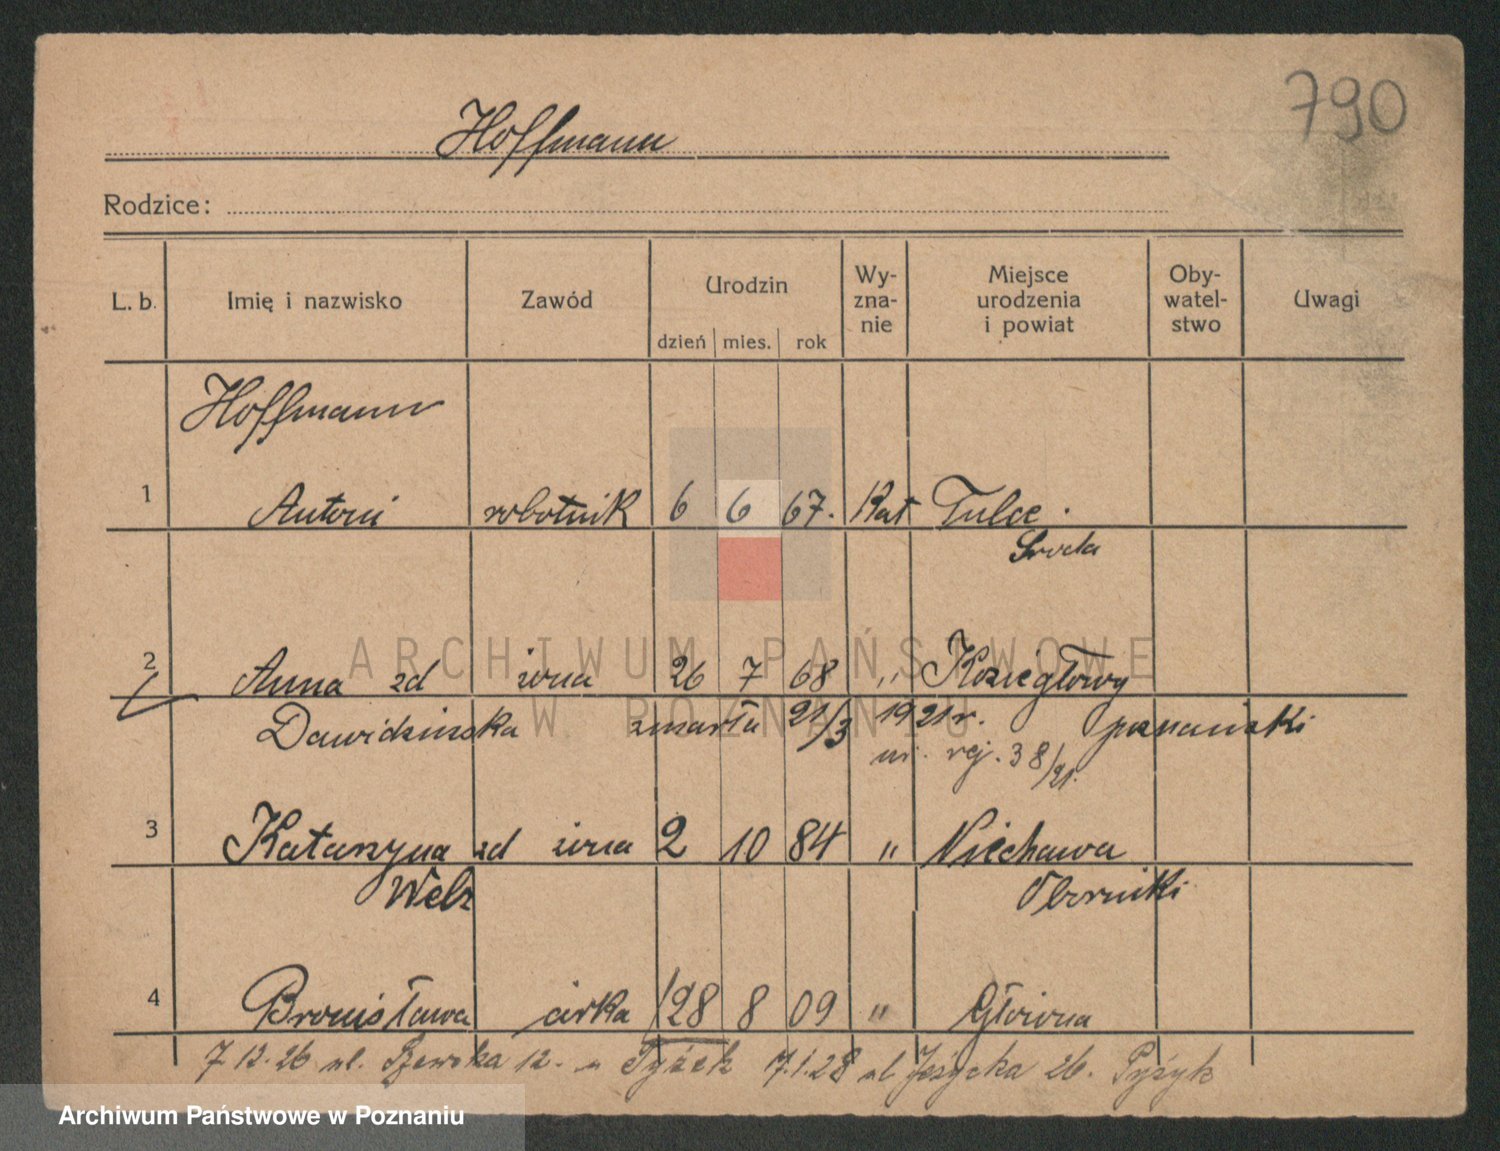 790
Hoffmann
Rodzice:
L. b. Imię i nazwisko Zawód Urodzin dzień mies. rok Wy-zna-nie Miejsce urodzenia i powiat Oby-watel-stwo Uwagi
Hoffmann
1 Antoni robotnik 6 6 67. Kat Tulce.
Środa
2 Anna zd żona 26 7 68 " Koziegłowy
Dawidzińska zmarła 21/3 1921 r. poznański
nr. rej. 38/21.
3 Katarzyna zd żona 2 10 84 " Niechawa
Welz Oborniki
4 Bronisława córka 28 8 09 " Główna
7 12. 26 ul. 12. 17.1.28 ul Jeżycka 26.
ARCHIWUM PAŃSTWOWE
W POZNANIU
Archiwum Państwowe w Poznaniu